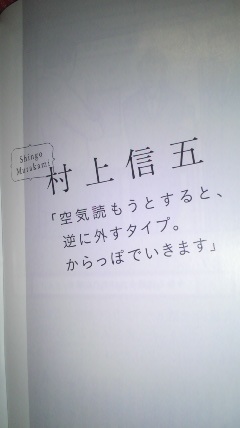 Shingo
Murakami
村上信五
「空気読もうとすると、
逆に外すタイプ。
からっぽでいきます」